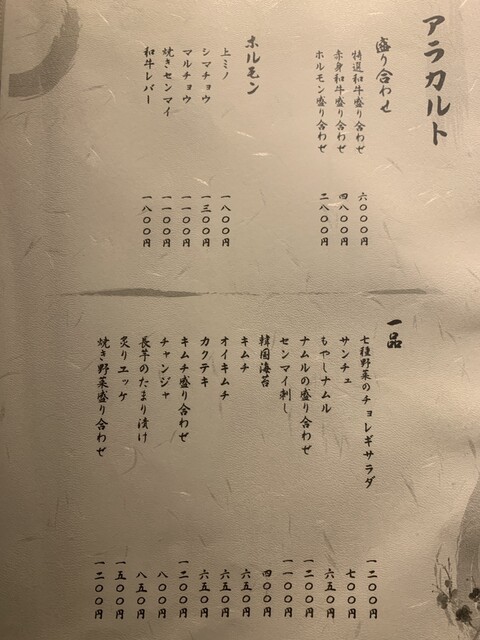 アラカルト
盛り合わせ
特選和牛盛り合わせ 六〇〇〇円
赤身和牛盛り合わせ 四八〇〇円
ホルモン盛り合わせ 二八〇〇円
ホルモン
上ミノ 一八〇〇円
シマチョウ 一三〇〇円
マルチョウ 一一〇〇円
焼きセンマイ 一一〇〇円
和牛レバー 一八〇〇円
一品
七種野菜のチョレギサラダ 一二〇〇円
サンチュ 七〇〇円
もやしナムル 六五〇円
ナムルの盛り合わせ 一二〇〇円
センマイ刺し 一一〇〇円
韓国海苔 四〇〇円
キムチ 六五〇円
オイキムチ 六五〇円
カクテキ 六五〇円
キムチ盛り合わせ 一二〇〇円
チャンジャ 八〇〇円
長芋のたまり漬け 八五〇円
炙りユッケ 一五〇〇円
焼き野菜盛り合わせ 一二〇〇円